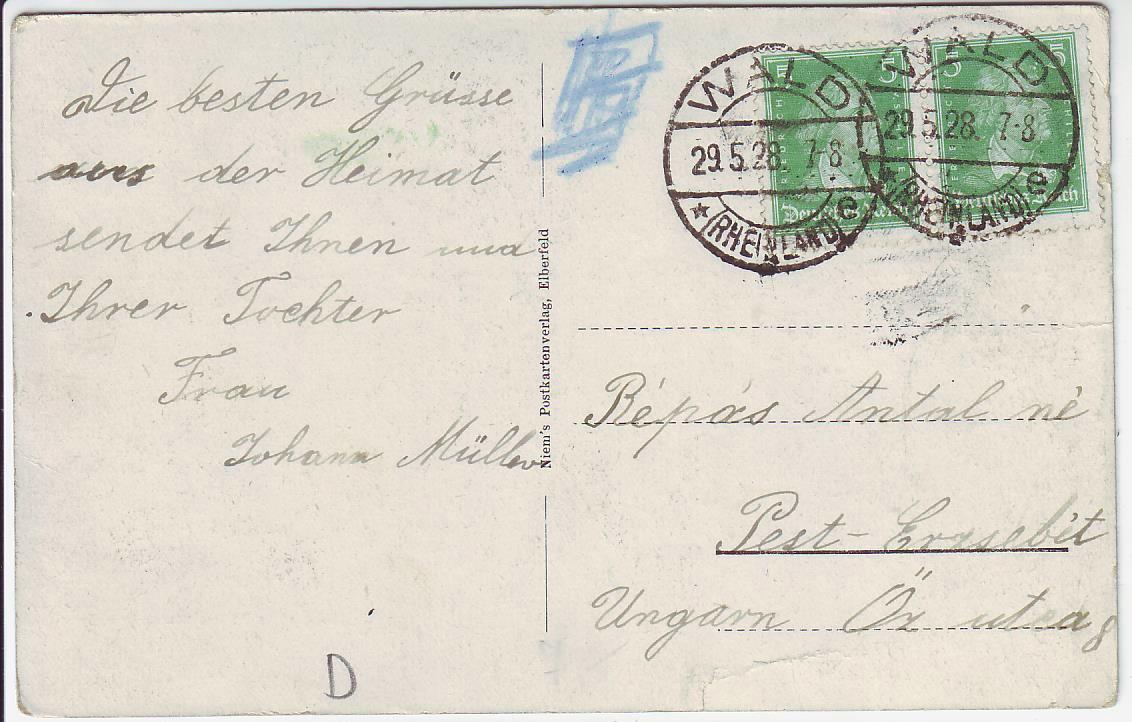 Die besten Grüsse
aus der Heimat
sendet Ihnen und
Ihrer Tochter
Frau
Johann Müller
D
Niem's Postkartenverlag, Elberfeld
WALD
29.5.28. 7-8
* (RHEINLAND) e
WALD
29.5.28. 7-8
* (RHEINLAND) e
5
5
Deutsches Reich
Deutsches Reich
Répás Antal né
Pest-Erzsebét
Ungarn Őr utca 8